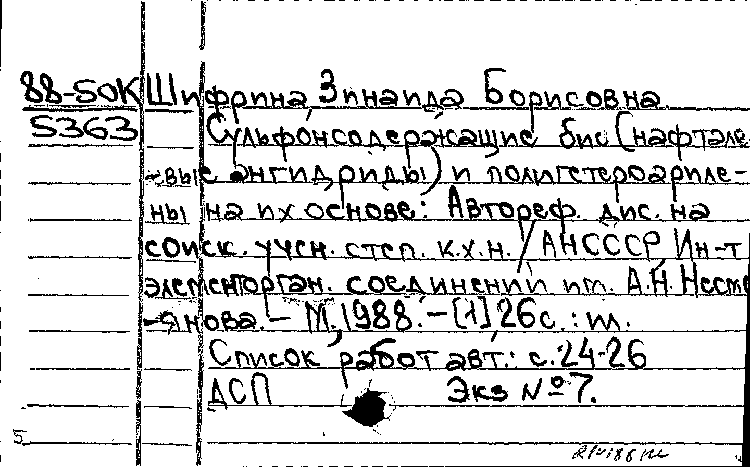 88-50К Шифрина, Зинаида Борисовна.
5363 Сульфонсодержащие бис(нафтале-
-вые ангидриды) и полигетероариле-
ны на их основе: Автореф. дис. на
соиск. учен. степ. к.х.н. / АНСССР, Ин-т
элементорган. соединений им. А.Н. Несме
-янова. – М., 1988. – [1], 26с. : ил.
Список работ авт.: с. 24-26
ДСП Экз № 7.
5